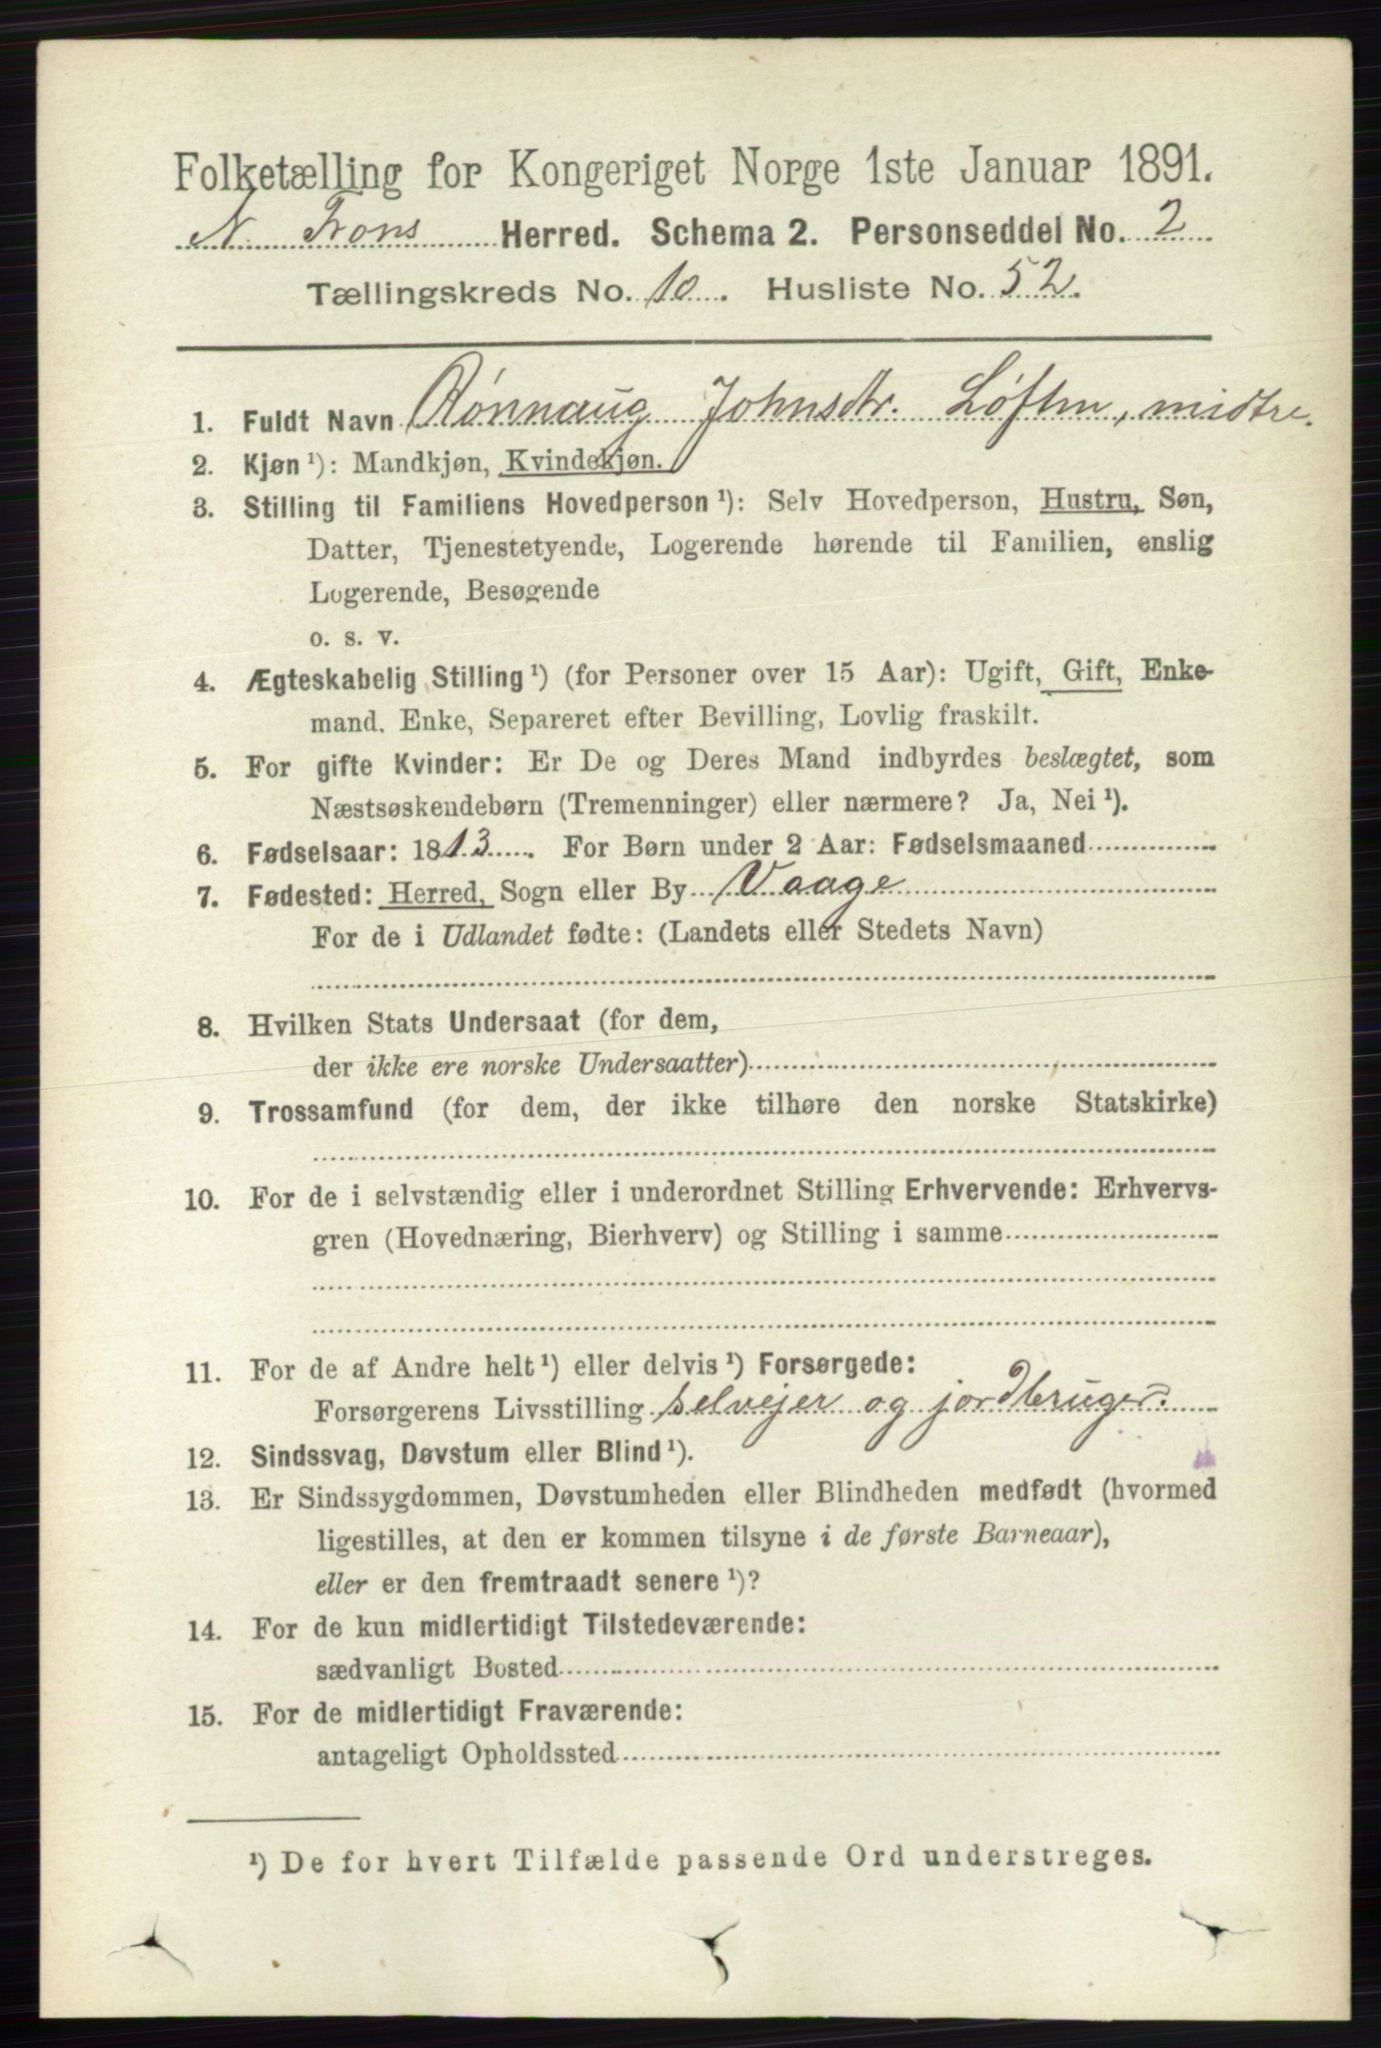 Folketælling for Kongeriget Norge 1ste Januar 1891.
N. Frons Herred. Schema 2. Personseddel No. 2
Tællingskreds No. 10. Husliste No. 52.
1. Fuldt Navn Rønnaug Johnsdtr. Løften, midtre.
2. Kjøn ¹): Mandkjøn, Kvindekjøn.
3. Stilling til Familiens Hovedperson ¹): Selv Hovedperson, Hustru, Søn,
Datter, Tjenestetyende, Logerende hørende til Familien, enslig
Logerende, Besøgende
o. s. v.
4. Ægteskabelig Stilling ¹) (for Personer over 15 Aar): Ugift, Gift, Enke-
mand, Enke, Separeret efter Bevilling, Lovlig fraskilt.
5. For gifte Kvinder: Er De og Deres Mand indbyrdes beslægtet, som
Næstsøskendebørn (Tremenninger) eller nærmere? Ja, Nei ¹).
6. Fødselsaar: 1813. For Børn under 2 Aar: Fødselsmaaned
7. Fødested: Herred, Sogn eller By Vaage
For de i Udlandet fødte: (Landets eller Stedets Navn)
8. Hvilken Stats Undersaat (for dem,
der ikke ere norske Undersaatter)
9. Trossamfund (for dem, der ikke tilhøre den norske Statskirke)
10. For de i selvstændig eller i underordnet Stilling Erhvervende: Erhvervs-
gren (Hovednæring, Bierhverv) og Stilling i samme
11. For de af Andre helt ¹) eller delvis ¹) Forsørgede:
Forsørgerens Livsstilling selvejer og jordbruger.
12. Sindssvag, Døvstum eller Blind ¹).
13. Er Sindssygdommen, Døvstumheden eller Blindheden medfødt (hvormed
ligestilles, at den er kommen tilsyne i de første Barneaar),
eller er den fremtraadt senere ¹)?
14. For de kun midlertidigt Tilstedeværende:
sædvanligt Bosted
15. For de midlertidigt Fraværende:
antageligt Opholdssted
¹) De for hvert Tilfælde passende Ord understreges.